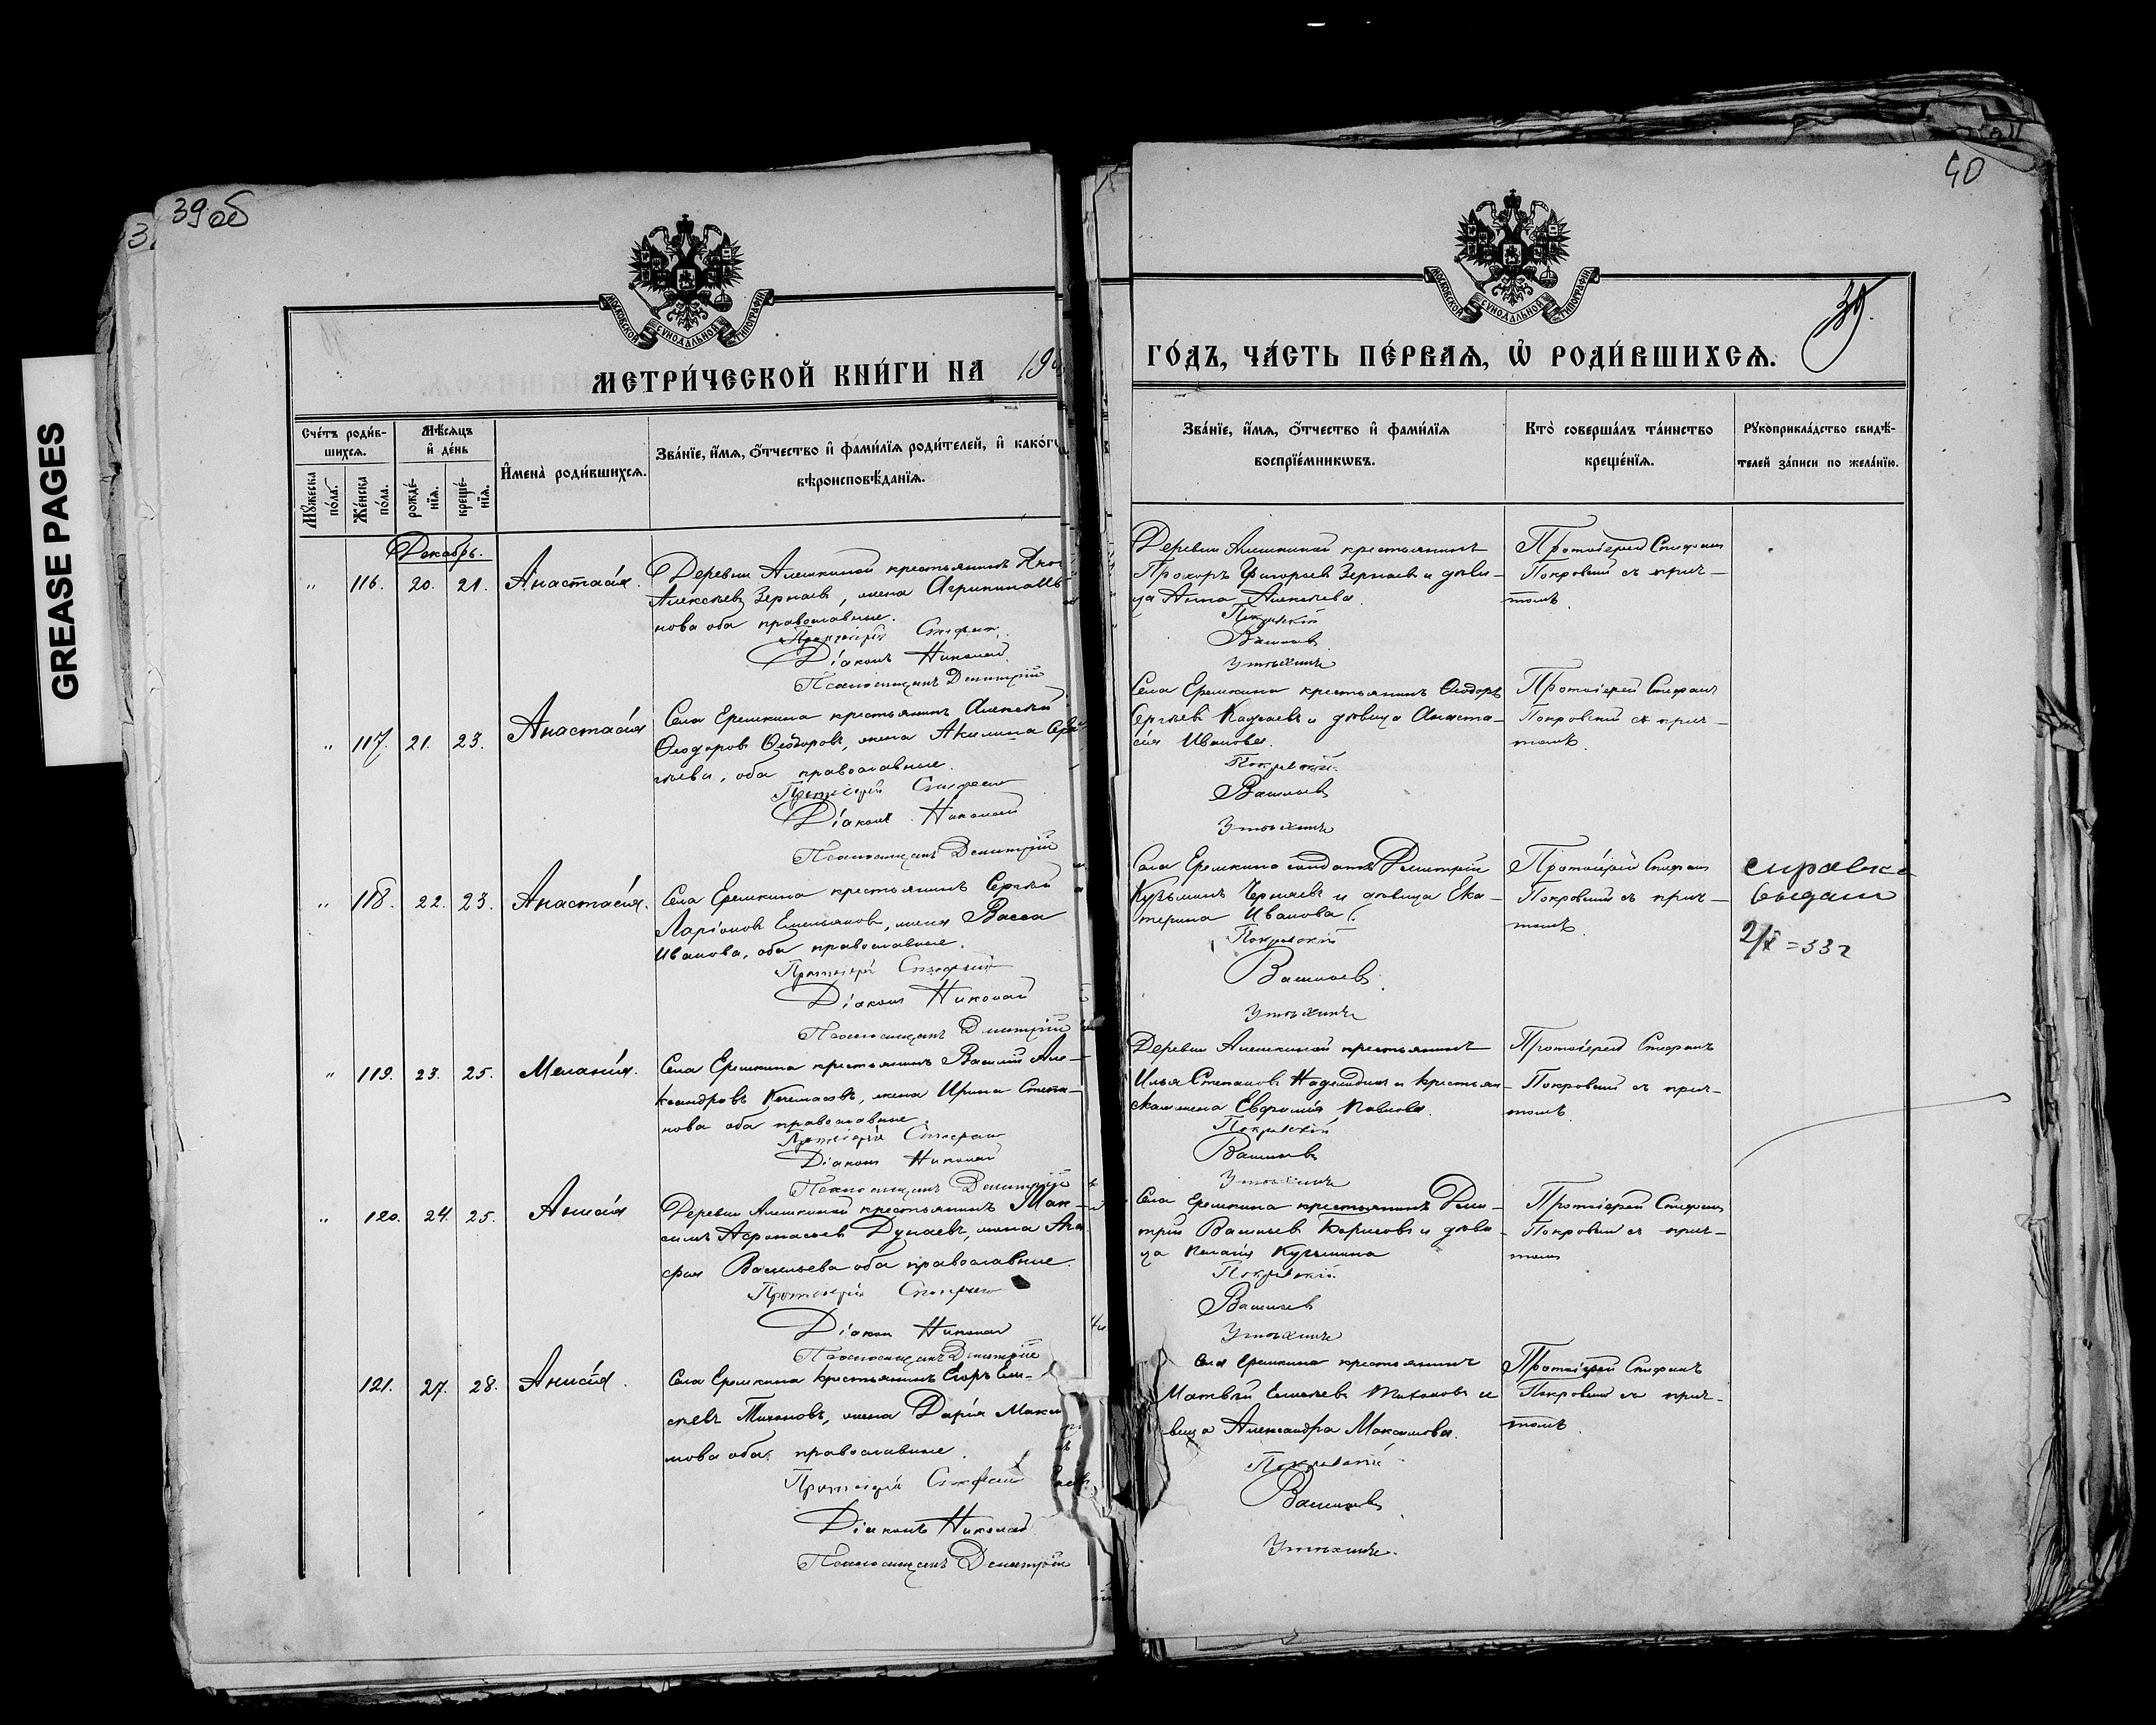 39 об
40
39.
GREASE PAGES
МОСКОВСКОЙ СѴНОДАЛЬНОЙ ТИПОГРАФІИ
МОСКОВСКОЙ СѴНОДАЛЬНОЙ ТИПОГРАФІИ
МЕТРИ́ЧЕСКОЙ КНИ́ГИ НА 19
ГО́ДЪ, ЧА́СТЬ ПЕ́РВАѦ, Ѡ҆ РОДИ́ВШИХСѦ.
Сче́тъ роди́в-
шихсѧ.
Мꙋ́жеска по́ла.
Же́нска по́ла.
Мѣ́сѧцъ
и҆ де́нь
рожде́-нїѧ.
креще́-нїѧ.
И҆мена̀ роди́вшихсѧ.
Зва́нїе, и҆́мѧ, ѻ҆́тчество и҆ фами́лїѧ роди́телей, и҆ како́гѡ
вѣроисповѣ́данїѧ.
Зва́нїе, и҆́мѧ, ѻ҆́тчество и҆ фами́лїѧ
воспрїе́мникѡвъ.
Кто̀ соверша́лъ та́инство
креще́нїѧ.
Рꙋкоприкла́дство свидѣ́-
телей за́писи по жела́нїю.
Декабрь.
" 116. 20. 21. Анастасія.
Деревни Алешкиной крестьянинъ
Алексѣевъ Зернаевъ, жена Агрипина
нова оба православные.
Протоіерей Стефан
Діаконъ Николай
Псаломщикъ Димитрій
Деревни Алешкиной крестьянинъ
Прохоръ Григорьевъ Зернаевъ и дѣви-
ца Анна Алексѣева.
Покровскій
Васильевъ
Утѣхинъ
Протоіерей Стефанъ
Покровскій съ прич-
томъ.
" 117. 21. 23. Анастасія
Села Еремкина крестьянинъ Алексѣй
Ѳеодоровъ Ѳеодоровъ, жена Акилина Сер
гѣева, оба православные.
Протоіерей Стефан
Діаконъ Николай
Псаломщикъ Димитрій
Села Еремкина крестьянинъ Ѳеодоръ
Сергѣевъ и дѣвица Анаста-
сія Иванова.
Покровскій
Васильевъ
Утѣхинъ
Протоіерей Стефанъ
Покровскій съ прич-
томъ.
" 118. 22. 23. Анастасія.
Села Еремкина крестьянинъ Сергѣй
Ларіоновъ Емельяновъ, жена Васса
Иванова, оба православные.
Протоіерей Стефан
Діаконъ Николай
Псаломщикъ Димитрій
Села Еремкина солдатъ Димитрій
Кузьминъ Чернаевъ и дѣвица Ека-
терина Иванова.
Покровскій
Васильевъ
Утѣхинъ
Протоіерей Стефанъ
Покровскій съ прич-
томъ.
справка
выдан
2/X = 53 г
" 119. 23. 25. Меланія.
Села Еремкина крестьянинъ Василій Але-
ксандровъ, жена Ирина Степа-
нова оба православные.
Протоіерей Стефан
Діаконъ Николай
Псаломщикъ Димитрій
Деревни Алешкиной крестьянинъ
Илья Степановъ и крестьян-
ская жена Евфимія Павлова.
Покровскій
Васильевъ
Утѣхинъ
Протоіерей Стефанъ
Покровскій съ прич-
томъ.
" 120. 24. 25. Анисія
Деревни Алешкиной крестьянинъ Мак-
симъ Афонасьевъ Дунаевъ, жена Ага
фія Васильева оба православные.
Протоіерей Стефан
Діаконъ Николай
Псаломщикъ Димитрій
Села Еремкина крестьянинъ Дими-
трій Васильевъ Борисовъ и дѣви
ца Пелагія Кузьмина
Покровскій
Васильевъ
Утѣхинъ
Протоіерей Стефанъ
Покровскій съ прич-
томъ
121. 27. 28. Анисія.
Села Еремкина крестьянинъ Егоръ Ели-
сѣевъ Тихоновъ, жена Дарія Макси
мова оба православные.
Протоіерей Стефан
Діаконъ Николай
Псаломщикъ Димитрій
Села Еремкина крестьянинъ
Матвѣй Елисѣевъ Тихоновъ и
вица Александра Максимова.
Покровскій
Васильевъ
Утѣхинъ.
Протоіерей Стефанъ
Покровскій съ прич-
томъ.